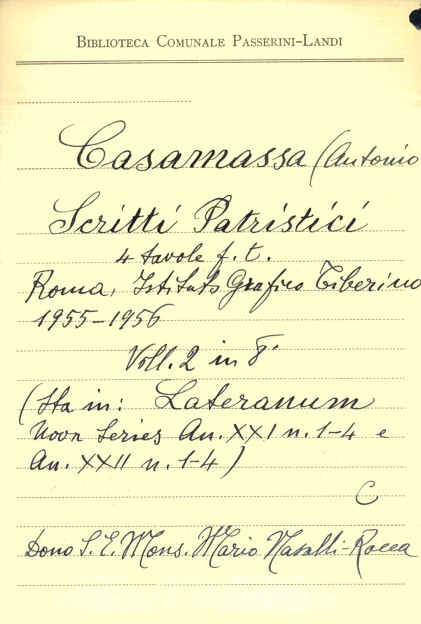 BIBLIOTECA COMUNALE PASSERINI-LANDI
Casamassa (Antonio
Scritti Patristici
4 tavole f. t.
Roma, Istituto Grafico Tiberino
1955-1956
Voll. 2 in 8°
(Sta in: Lateranum
Nova Series An. XXI n. 1-4 e
An. XXII n. 1-4)
C
Dono S. E. Mons. Mario Nasalli-Rocca